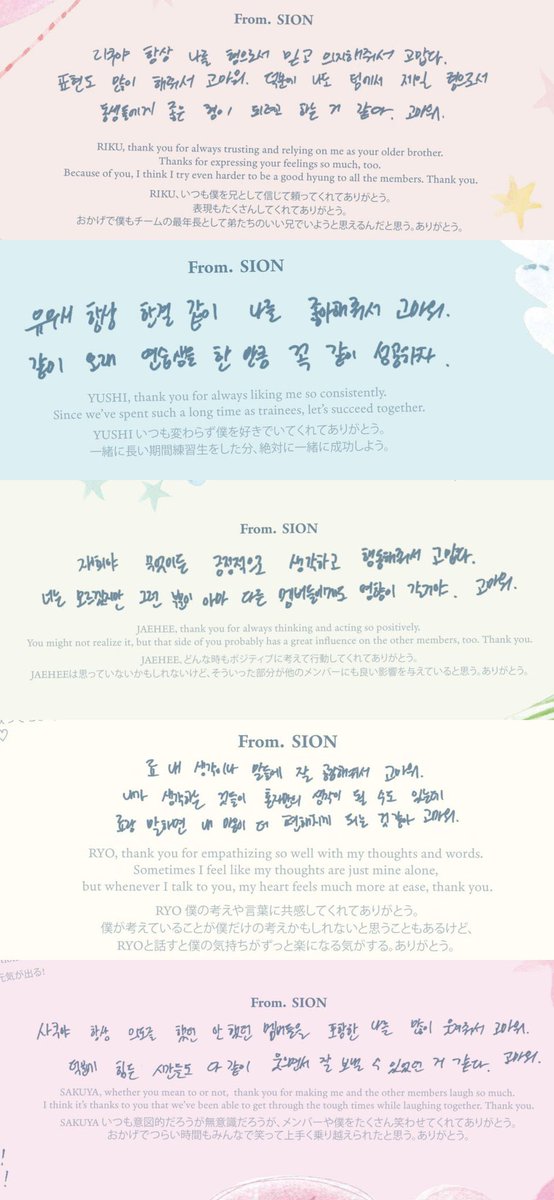 From. SION
리쿠야 항상 나를 형으로서 믿고 의지해줘서 고맙다.
표현도 많이 해줘서 고마워. 덕분에 나도 팀에서 제일 형으로서
동생들에게 좋은 형이 되려고 하는 거 같다. 고마워.
RIKU, thank you for always trusting and relying on me as your older brother.
Thanks for expressing your feelings so much, too.
Because of you, I think I try even harder to be a good hyung to all the members. Thank you.
RIKU、いつも僕を兄として信じて頼ってくれてありがとう。
表現もたくさんしてくれてありがとう。
おかげで僕もチームの最年長として弟たちのいい兄でいようと思えるんだと思う。ありがとう。
From. SION
유우시 항상 한결 같이 나를 좋아해줘서 고마워.
같이 오래 연습생을 한 만큼 꼭 같이 성공하자.
YUSHI, thank you for always liking me so consistently.
Since we've spent such a long time as trainees, let's succeed together.
YUSHI いつも変わらず僕を好きでいてくれてありがとう。
一緒に長い期間練習生をした分、絶対に一緒に成功しよう。
From. SION
재희야 무엇이든 긍정적으로 생각하고 행동해줘서 고맙다.
너는 모르겠지만 그런 부분이 아마 다른 멤버들에게도 영향이 갈거야. 고마워.
JAEHEE, thank you for always thinking and acting so positively.
You might not realize it, but that side of you probably has a great influence on the other members, too. Thank you.
JAEHEE、どんな時もポジティブに考えて行動してくれてありがとう。
JAEHEEは思っていないかもしれないけど、そういった部分が他のメンバーにも良い影響を与えていると思う。ありがとう。
From. SION
료 내 생각이나 말들에 잘 공감해줘서 고마워.
내가 생각하는 것들이 혼자만의 생각이 될 수도 있는데
료랑 말하면 내 마음이 더 편해지게 되는 것 같아 고마워.
RYO, thank you for empathizing so well with my thoughts and words.
Sometimes I feel like my thoughts are just mine alone,
but whenever I talk to you, my heart feels much more at ease, thank you.
RYO 僕の考えや言葉に共感してくれてありがとう。
僕が考えていることが僕だけの考えかもしれないと思うこともあるけど、
RYOと話すと僕の気持ちがずっと楽になる気がする。ありがとう。
元気が出る!
From. SION
사쿠야 항상 의도를 했던 안했던 멤버들을 포함한 나를 많이 웃겨줘서 고마워.
덕분에 힘든 시간들도 다 같이 웃으면서 잘 보낼 수 있었던 거 같다. 고마워.
SAKUYA, whether you mean to or not, thank you for making me and the other members laugh so much.
I think it's thanks to you that we've been able to get through the tough times while laughing together. Thank you.
SAKUYA いつも意図的だろうが無意識だろうが、メンバーや僕をたくさん笑わせてくれてありがとう。
おかげでつらい時間もみんなで笑って上手く乗り越えられたと思う。ありがとう。